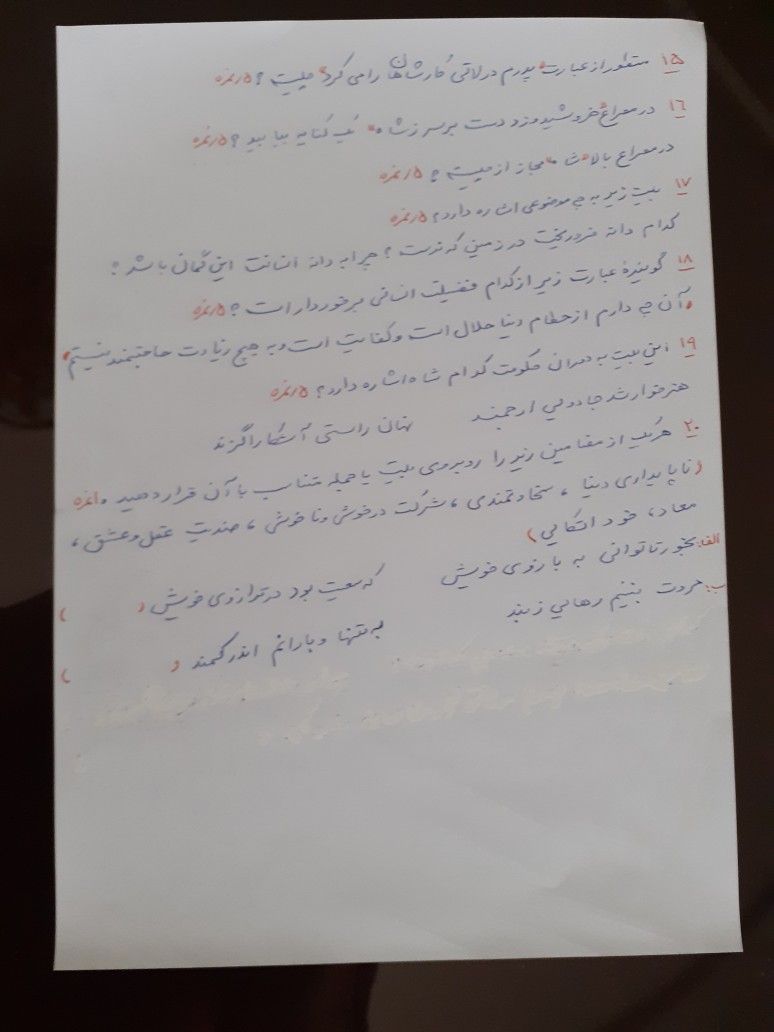 ۱۵ منظور از عبارت «پدرم در لاتی کار شاهان را می کرد» چیست؟ ۰/۵ نمره
۱۶ در مصراع «خروشید و زد دست بر سر ز شاه» یک کنایه بیابید؟ ۰/۵ نمره
در مصراع بالا «شاه» مجاز از چیست؟ ۰/۵ نمره
۱۷ بیت زیر به چه موضوعی اشاره دارد؟ ۰/۵ نمره
کدام دانه فرو ریخت در زمین که نرست؟ چرا به دانه انسانت این گمان باشد؟
۱۸ گویندهٔ عبارت زیر از کدام فضیلت انسانی برخوردار است؟ ۰/۵ نمره
«آن چه دارم از حطام دنیا حلال است و کفایت است و به هیچ زیادت حاجتمند نیستم»
۱۹ این بیت به دوران حکومت کدام شاه اشاره دارد؟ ۰/۵ نمره
هنر خوار شد جادویی ارجمند نهان راستی آشکارا گزند
۲۰ هریک از مفاهیم زیر را روبروی بیت یا جمله متناسب با آن قرار دهید. ۱ نمره
(ناپایداری دنیا، سخاوتمندی، شرکت در خوشی و ناخوشی، ضدیت عقل و عشق،
معاد، خود اتکایی)
الف: بخور تا توانی به بازوی خویش که سعیت بود در ترازوی خویش ( )
ب: مروت نبینم رهایی ز بند به تنها و یارانم اندر کمند ( )